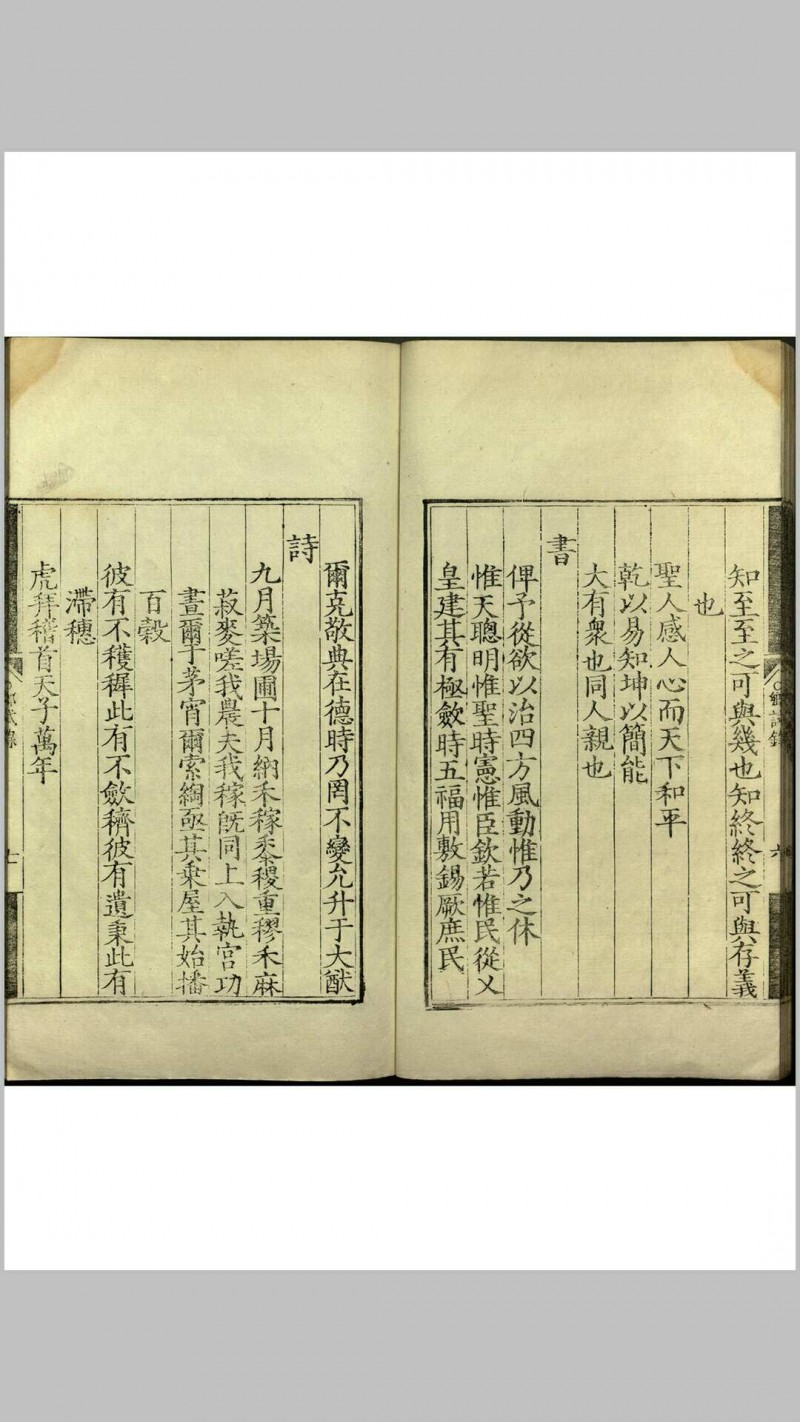 知至至之可與幾也知終終之可與存義
也
聖人感人心而天下和平
乾以易知坤以簡能
大有衆也同人親也
書
俾予從欲以治四方風動惟乃之休
惟天聰明惟聖時憲惟臣欽若惟民從乂
皇建其有極斂時五福用敷錫厥庶民
爾克敬典在德時乃罔不變允升于大猷
詩
九月築場圃十月納禾稼黍稷重穋禾麻
菽麥嗟我農夫我稼旣同上入執宮功
晝爾于茅宵爾索綯亟其乗屋其始播
百穀
彼有不穫穉此有不斂穧彼有遺秉此有
滯穗
虎拜稽首天子萬年
六
七